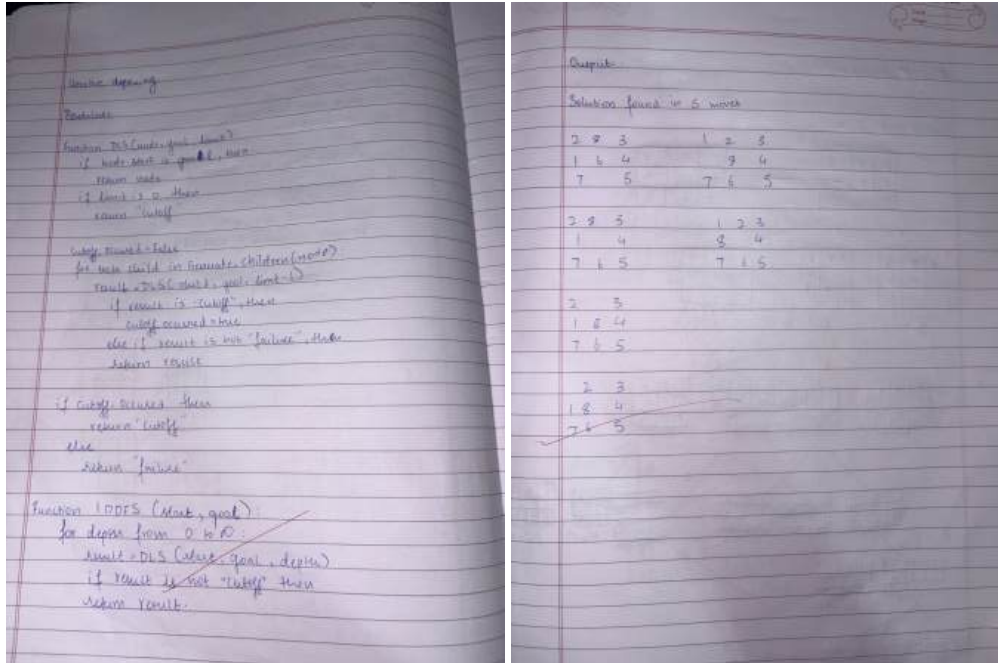 Iterative deepening
Function DLS (node, goal, limit)
if node state is goal, then
return node
if limit is 0 then
return "cutoff"
cutoff occured = False
for each child in Generate children (node)
result = DLS (child, goal, limit-1)
if result is "cutoff", then
cutoff occured = true
else if result is not "failure", then
return result
if cutoff occured then
return "cutoff"
else
return "failure"
Function IDDFS (start, goal):
for depth from 0 to ∞:
result = DLS (start, goal, depth)
if result is not "cutoff" then
return result.
Output
Solution found in 5 moves
2 8 3
1 6 4
7 5
2 8 3
1 4
7 6 5
2 3
1 8 4
7 6 5
2 3
1 8 4
7 6 5
1 2 3
8 4
7 6 5
1 2 3
8 4
7 6 5